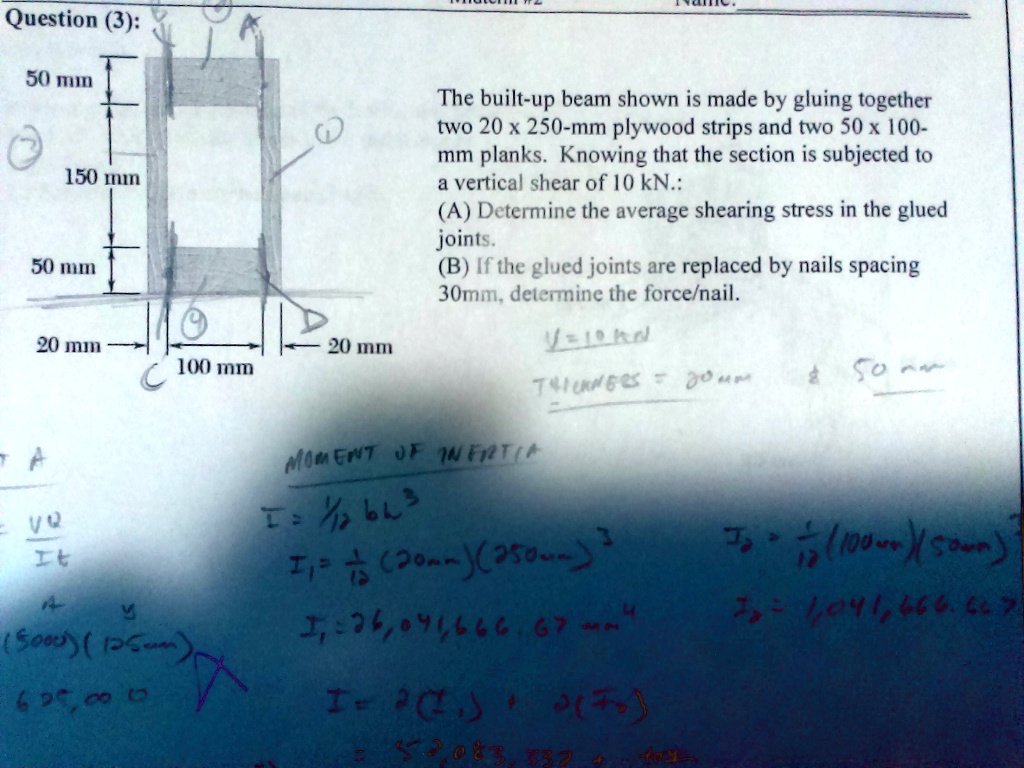 Question (3):
50 mm
150 mm
50 mm
20 mm
100 mm
20 mm
A
1
C
D
The built-up beam shown is made by gluing together
two 20 x 250-mm plywood strips and two 50 x 100-
mm planks. Knowing that the section is subjected to
a vertical shear of 10 kN.:
(A) Determine the average shearing stress in the glued
joints.
(B) If the glued joints are replaced by nails spacing
30mm, determine the force/nail.
V = 10 kN
THICKNESS = 20 mm & 50 mm
A
MOMENT OF INERTIA
VQ
It
I = 1/12 bh³
I₁ = 1/12 (20mm)(250mm)³
I₂ = 1/12 (100mm)(50mm)
A y
I₁ = 26,041,666.67 mm⁴
I₂ = 1,041,666.667
(5000)(125mm)
625,000
I = 2(I₁) + 2(I₂)